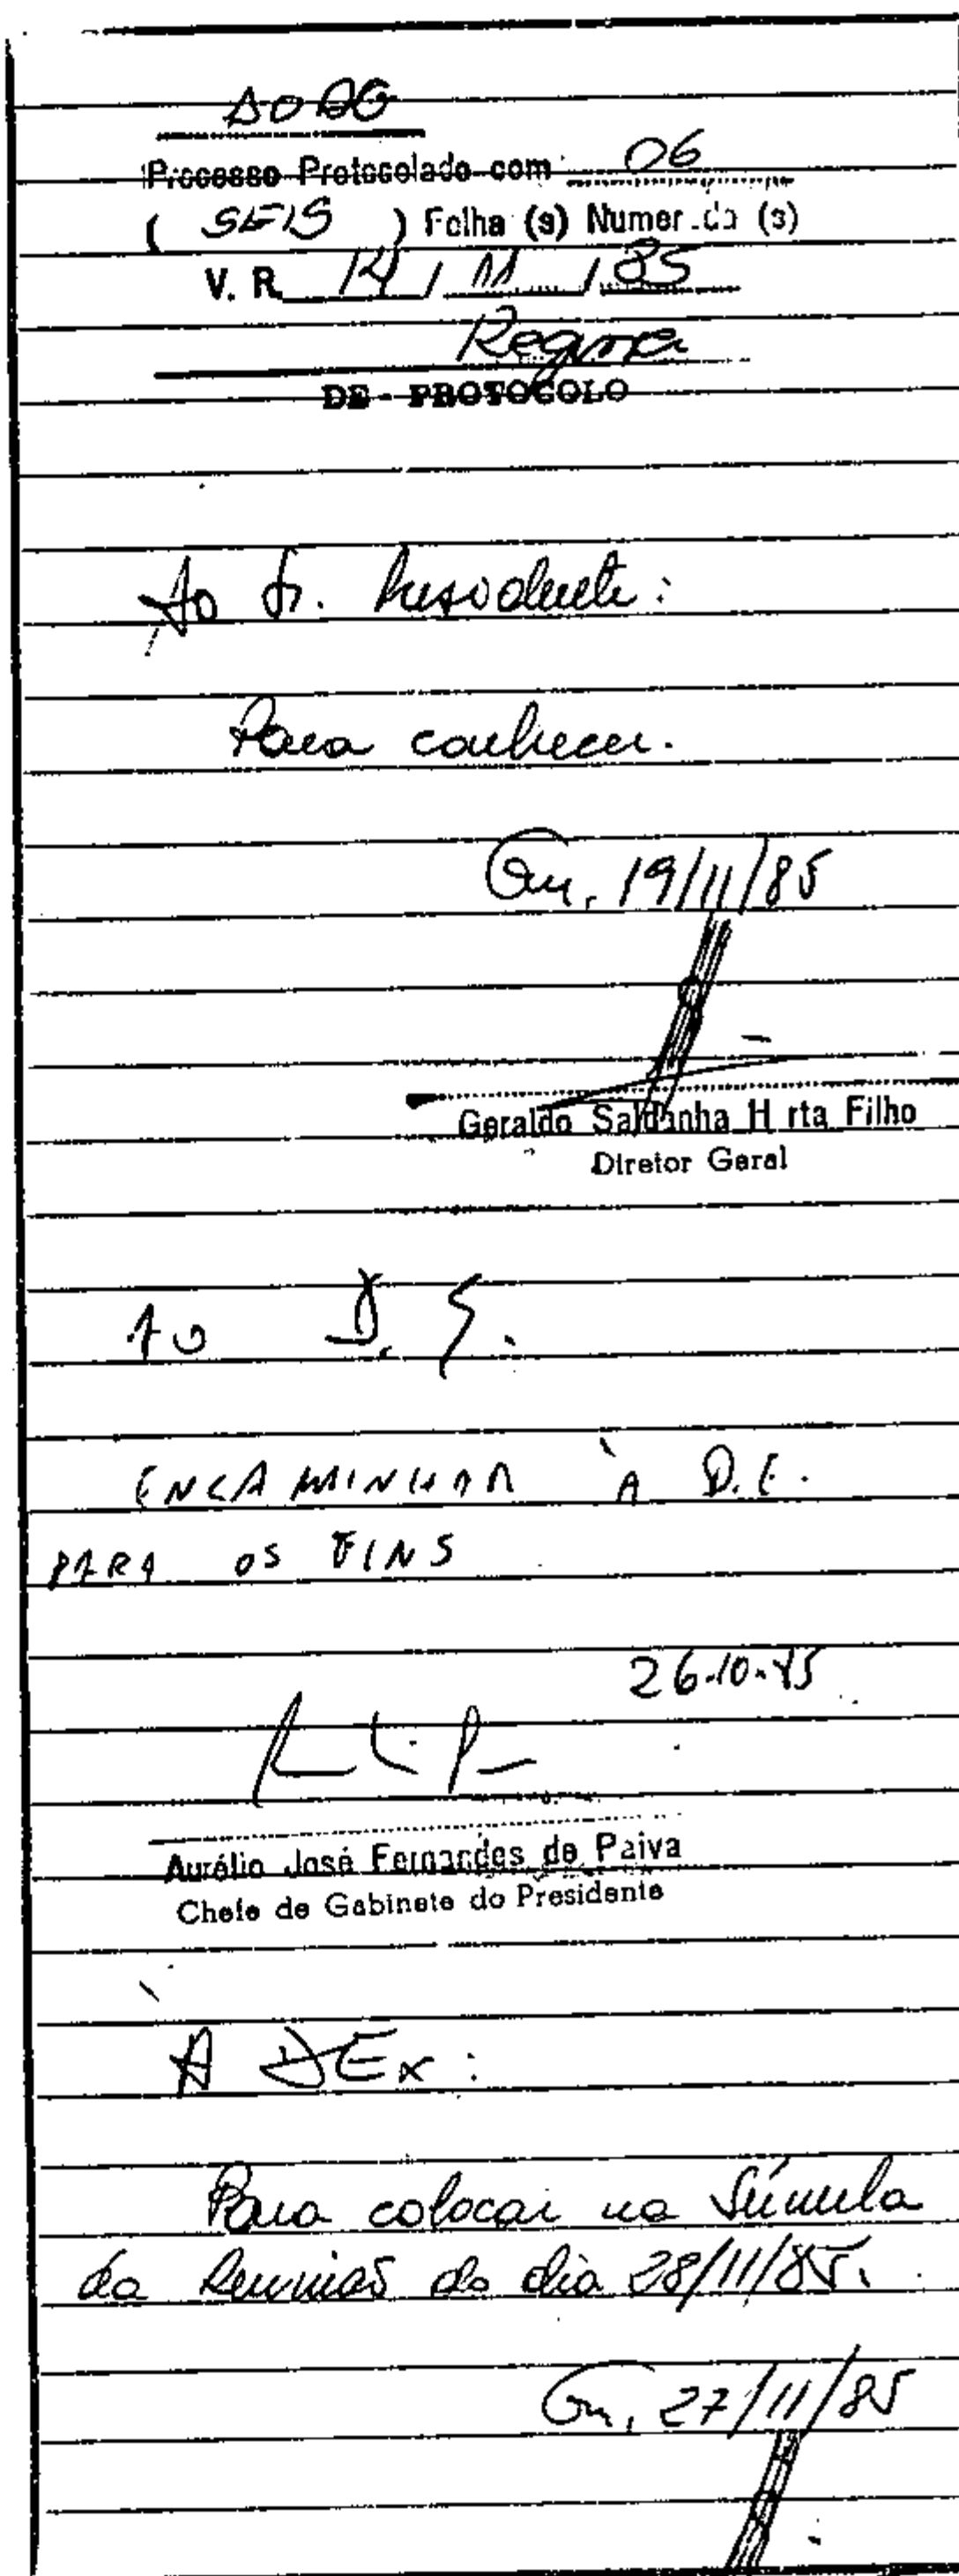 AO DG
Processo Protocolado com 06
( SEIS ) Folha (s) Numer da (s)
V. R. 14 / 11 / 85
Regina
DE - PROTOCOLO
Ao Sr. Presidente:
Para conhecer.
Em, 19/11/85
Geraldo Saldanha H rta Filho
Diretor Geral
Ao D. G.
ENCAMINHAR À D.E.
PARA OS FINS
26.10.85
Aurélio José Fernandes de Paiva
Chefe de Gabinete do Presidente
À DEx:
Para colocar na Súmula
da Reunião do dia 28/11/85.
Em, 27/11/85